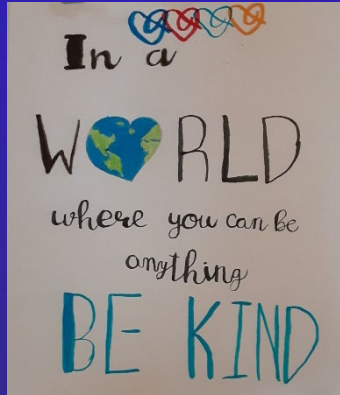 In a
W RLD
where you can be
anything
BE KIND